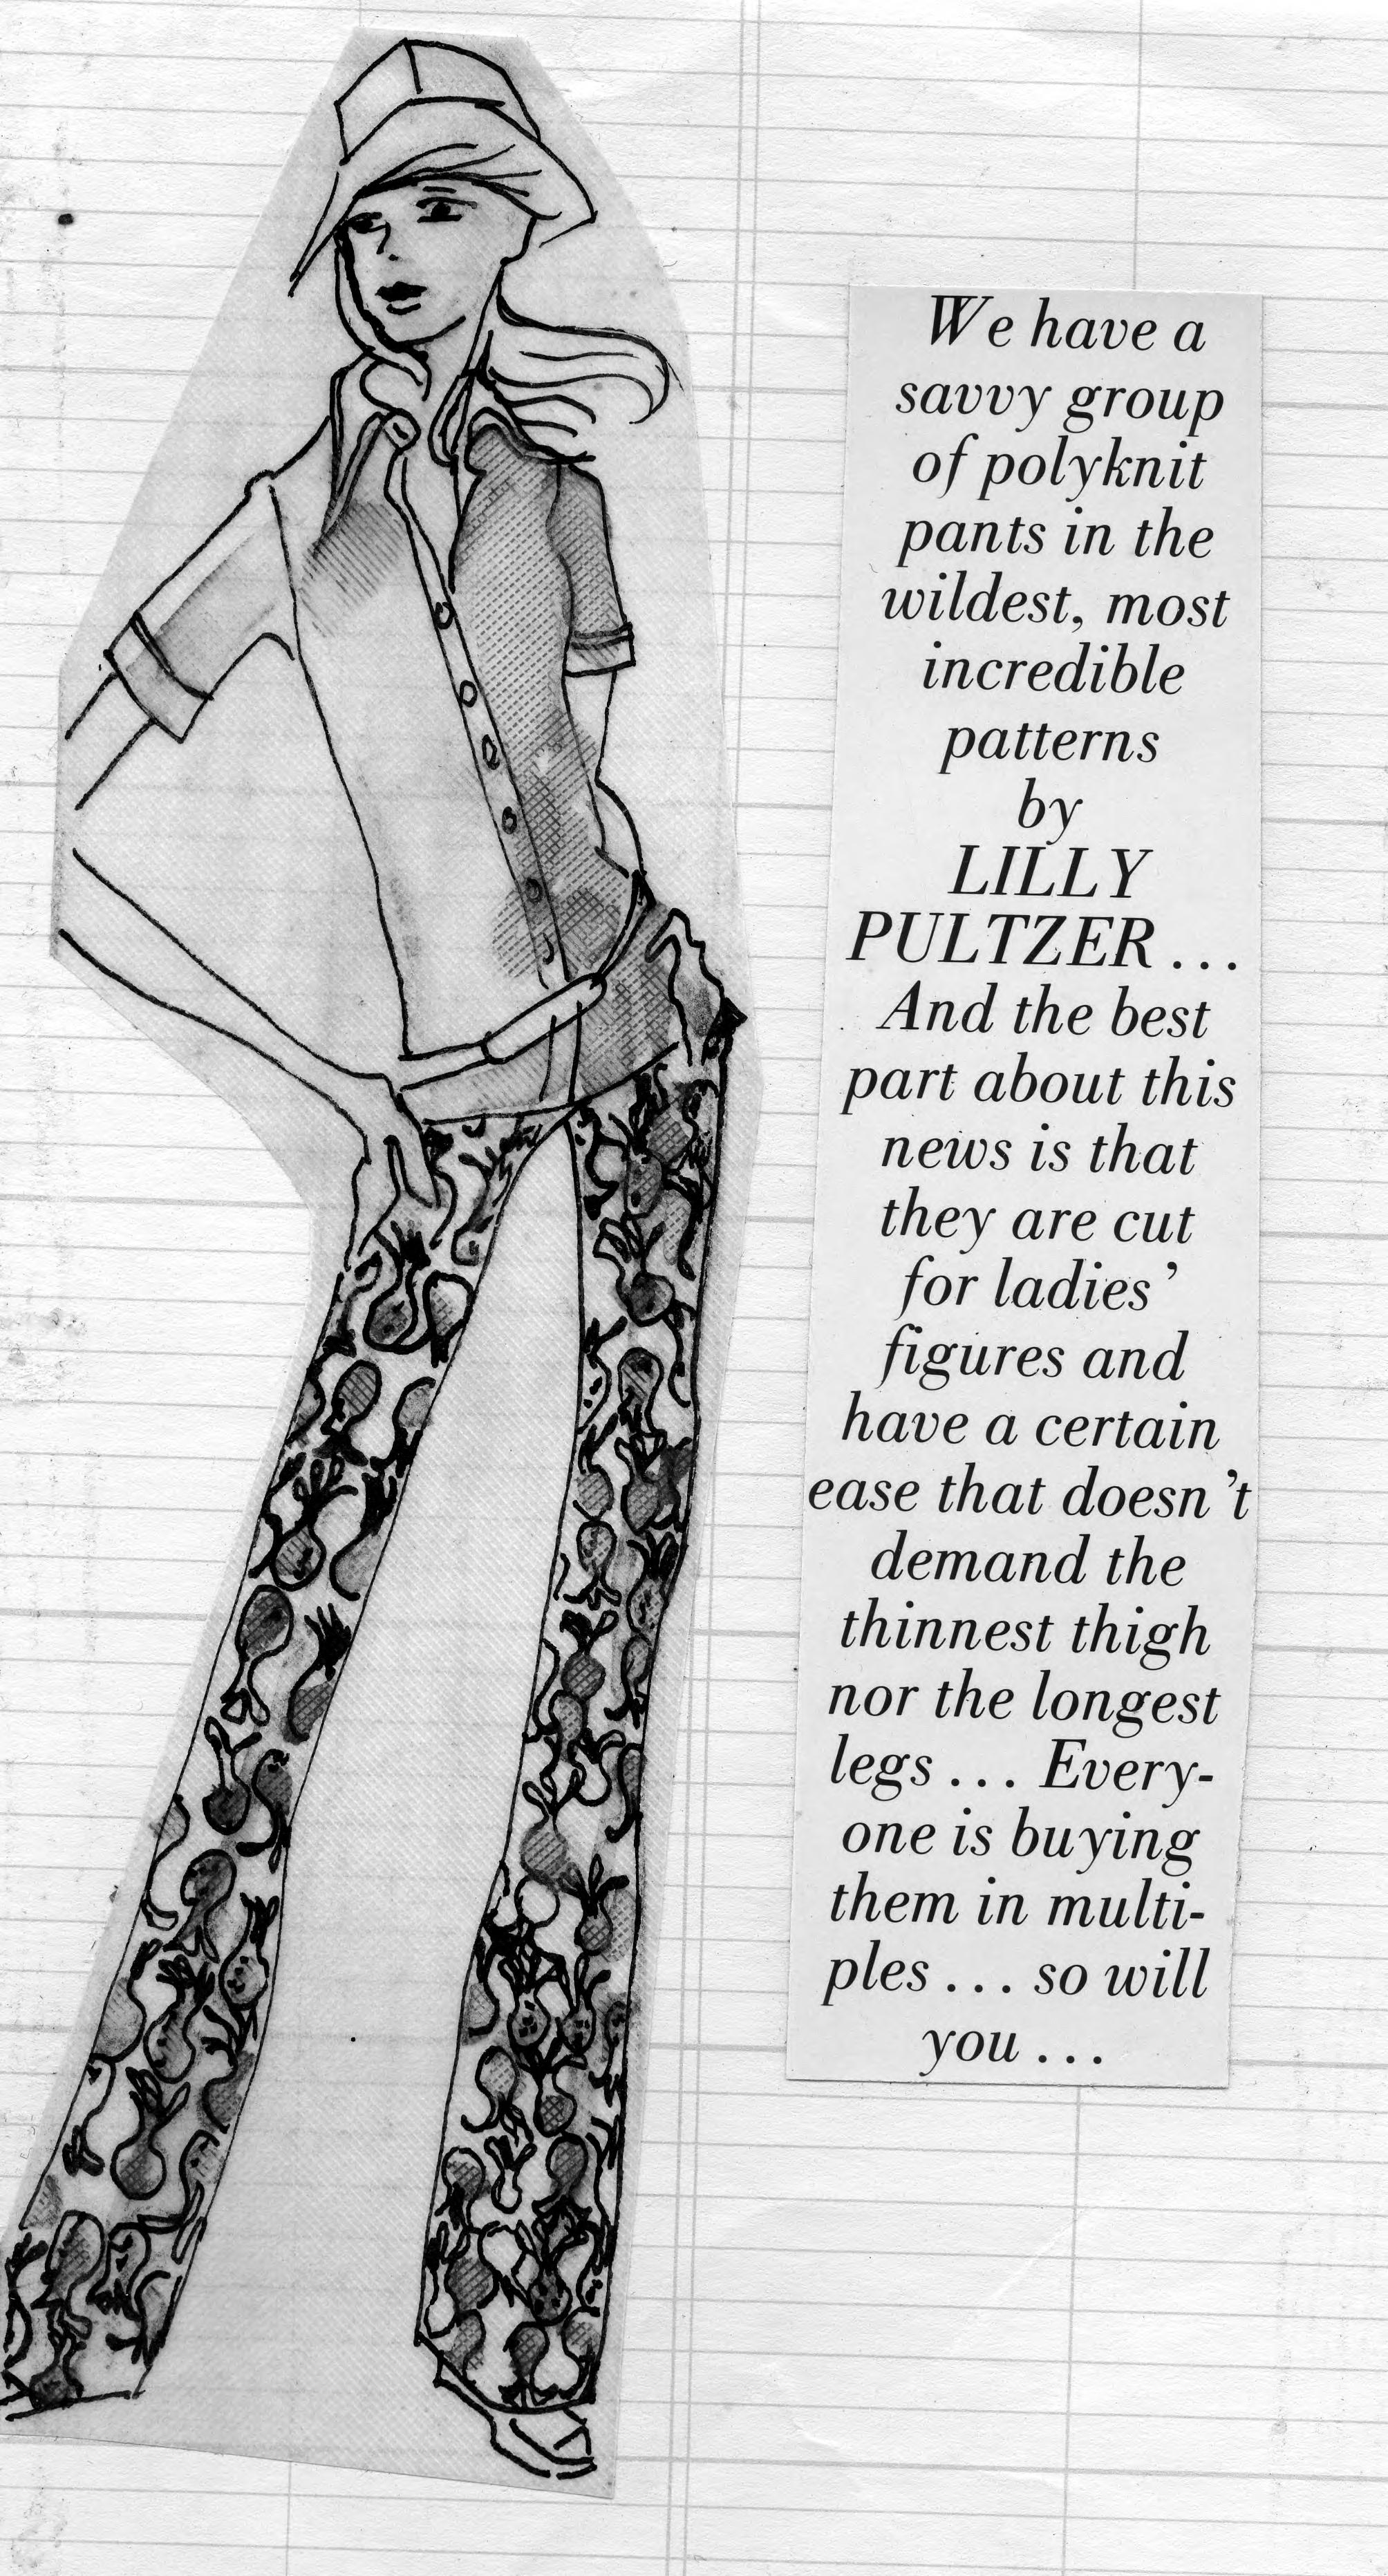 We have a
savvy group
of polyknit
pants in the
wildest, most
incredible
patterns
by
LILLY
PULTZER...
And the best
part about this
news is that
they are cut
for ladies’
figures and
have a certain
ease that doesn’t
demand the
thinnest thigh
nor the longest
legs... Every-
one is buying
them in multi-
ples... so will
you...